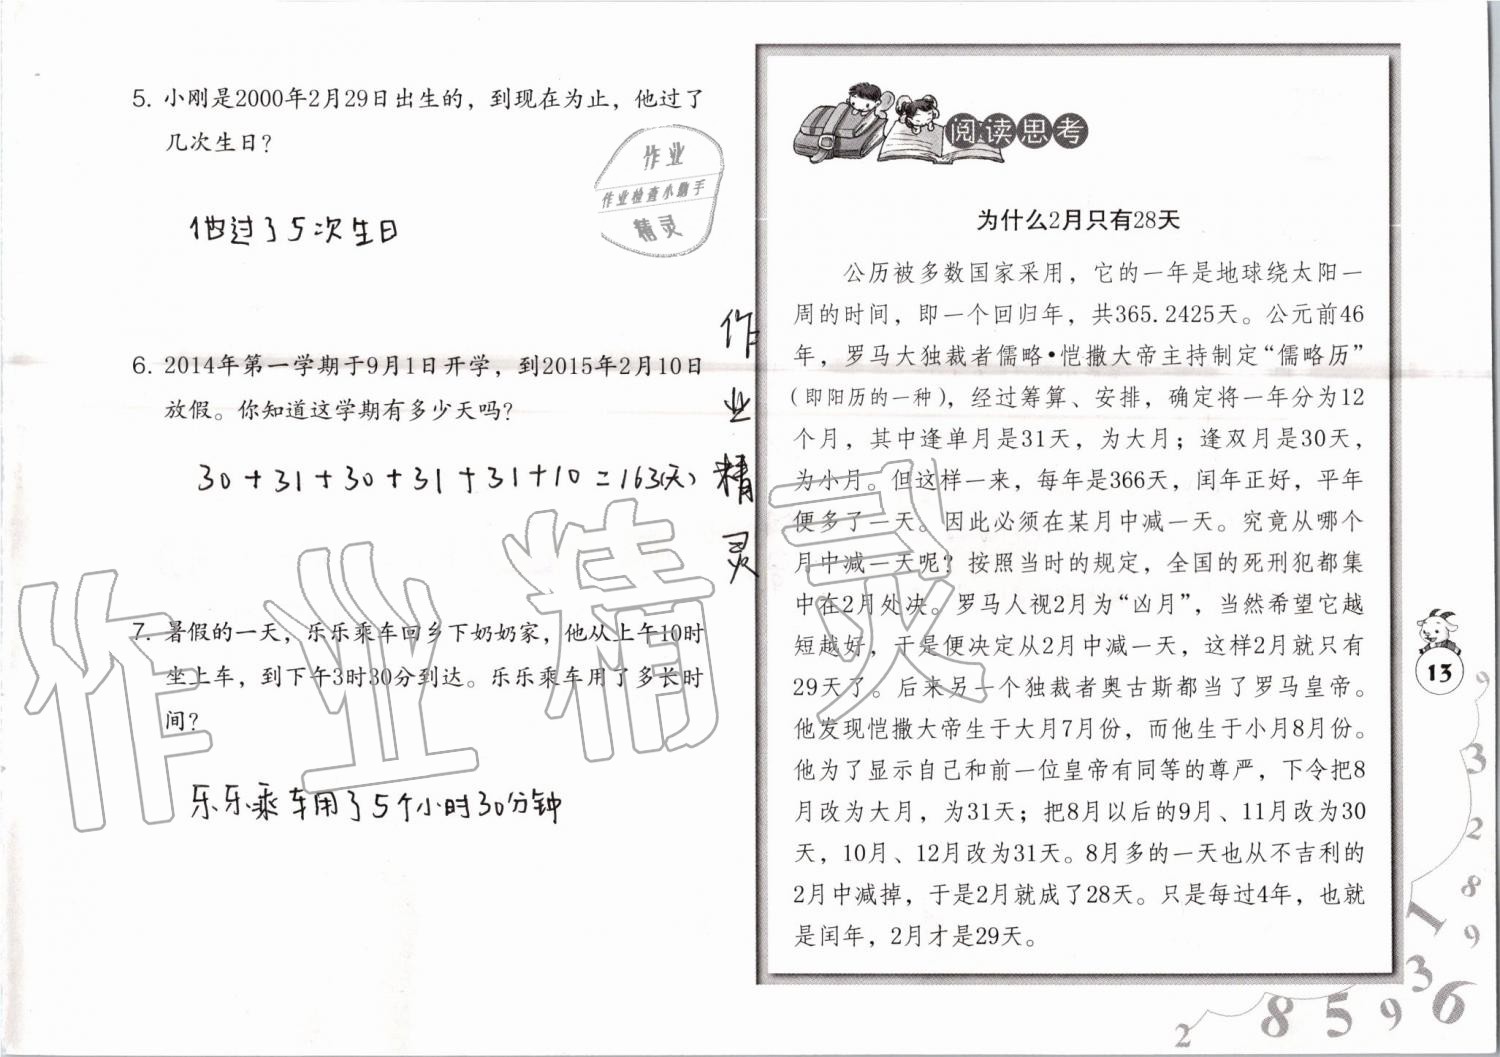 5. 小刚是2000年2月29日出生的，到现在为止，他过了
几次生日？
作业
作业检查小助手
精灵
他过了5次生日
6. 2014年第一学期于9月1日开学，到2015年2月10日
放假。你知道这学期有多少天吗？
30+31+30+31+31+10=163(天)
7. 暑假的一天，乐乐乘车回乡下奶奶家，他从上午10时
坐上车，到下午3时30分到达。乐乐乘车用了多长时
间？
乐乐乘车用了5个小时30分钟
作业精灵
作业精灵
阅读思考
为什么2月只有28天
公历被多数国家采用，它的一年是地球绕太阳一
周的时间，即一个回归年，共365.2425天。公元前46
年，罗马大独裁者儒略·恺撒大帝主持制定“儒略历”
（即阳历的一种），经过筹算、安排，确定将一年分为12
个月，其中逢单月是31天，为大月；逢双月是30天，
为小月。但这样一来，每年是366天，闰年正好，平年
便多了一天。因此必须在某月中减一天。究竟从哪个
月中减一天呢？按照当时的规定，全国的死刑犯都集
中在2月处决。罗马人视2月为“凶月”，当然希望它越
短越好，于是便决定从2月中减一天，这样2月就只有
29天了。后来另一个独裁者奥古斯都当了罗马皇帝。
他发现恺撒大帝生于大月7月份，而他生于小月8月份。
他为了显示自己和前一位皇帝有同等的尊严，下令把8
月改为大月，为31天；把8月以后的9月、11月改为30
天，10月、12月改为31天。8月多的一天也从不吉利的
2月中减掉，于是2月就成了28天。只是每过4年，也就
是闰年，2月才是29天。
13
9
3
2
8
9
1
3
6
2
8
5
9